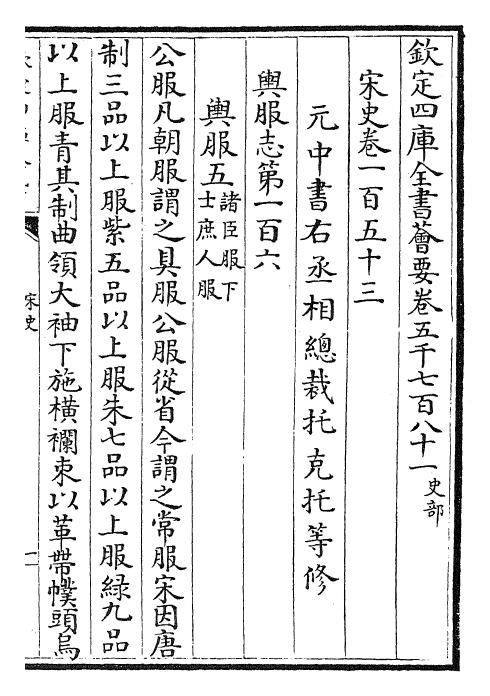 欽定四庫全書薈要卷五千七百八十一史部
宋史卷一百五十三
元中書右丞相總裁托克托等修
輿服志第一百六
輿服五諸臣服下士庶人服
公服凡朝服謂之具服公服從省今謂之常服宋因唐
制三品以上服紫五品以上服朱七品以上服綠九品
以上服青其制曲領大袖下施橫襴束以革帶幞頭烏
宋史
一